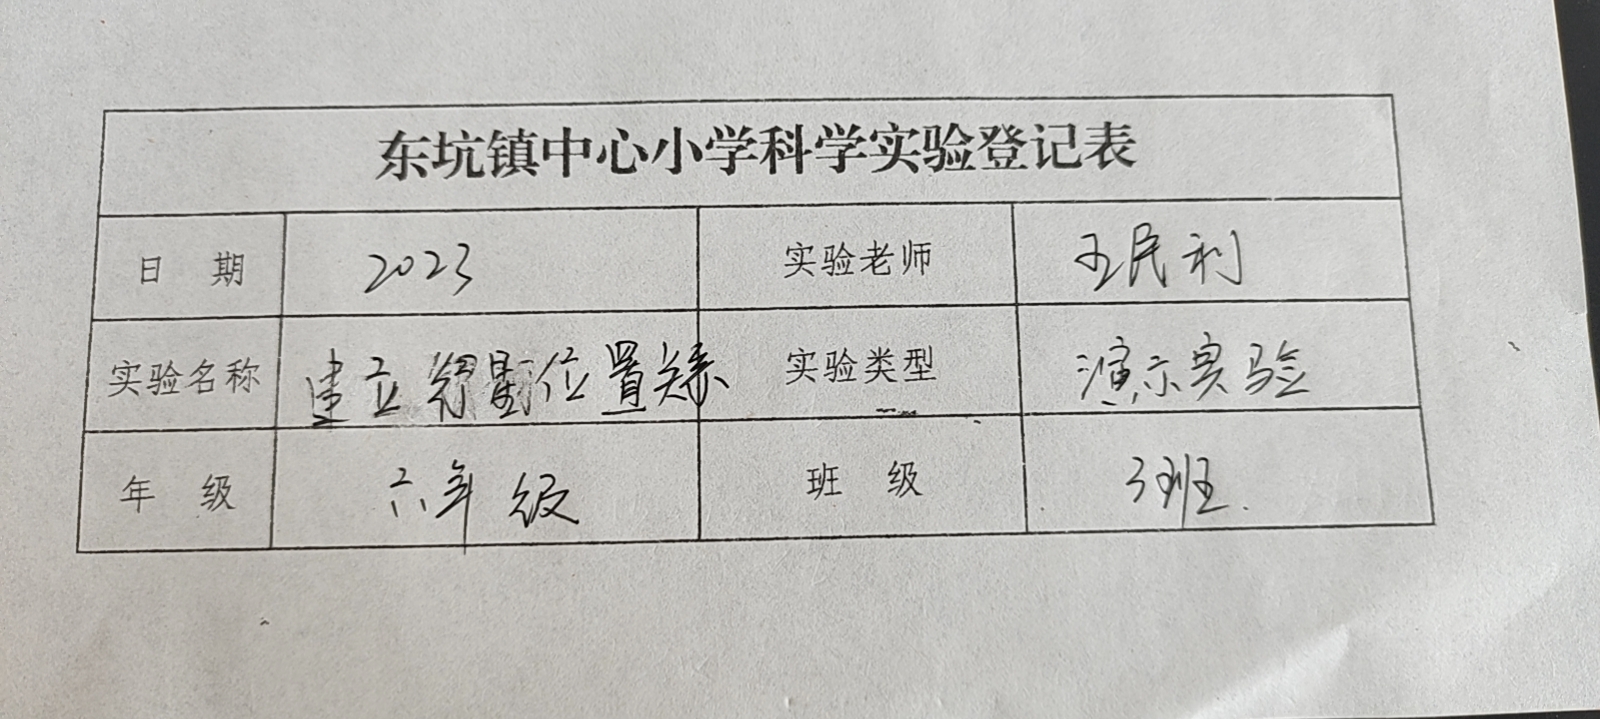 东坑镇中心小学科学实验登记表
日 期 2023 实验老师 王民利
实验名称 建立行星位置关系 实验类型 演示实验
年 级 六年级 班 级 3班.